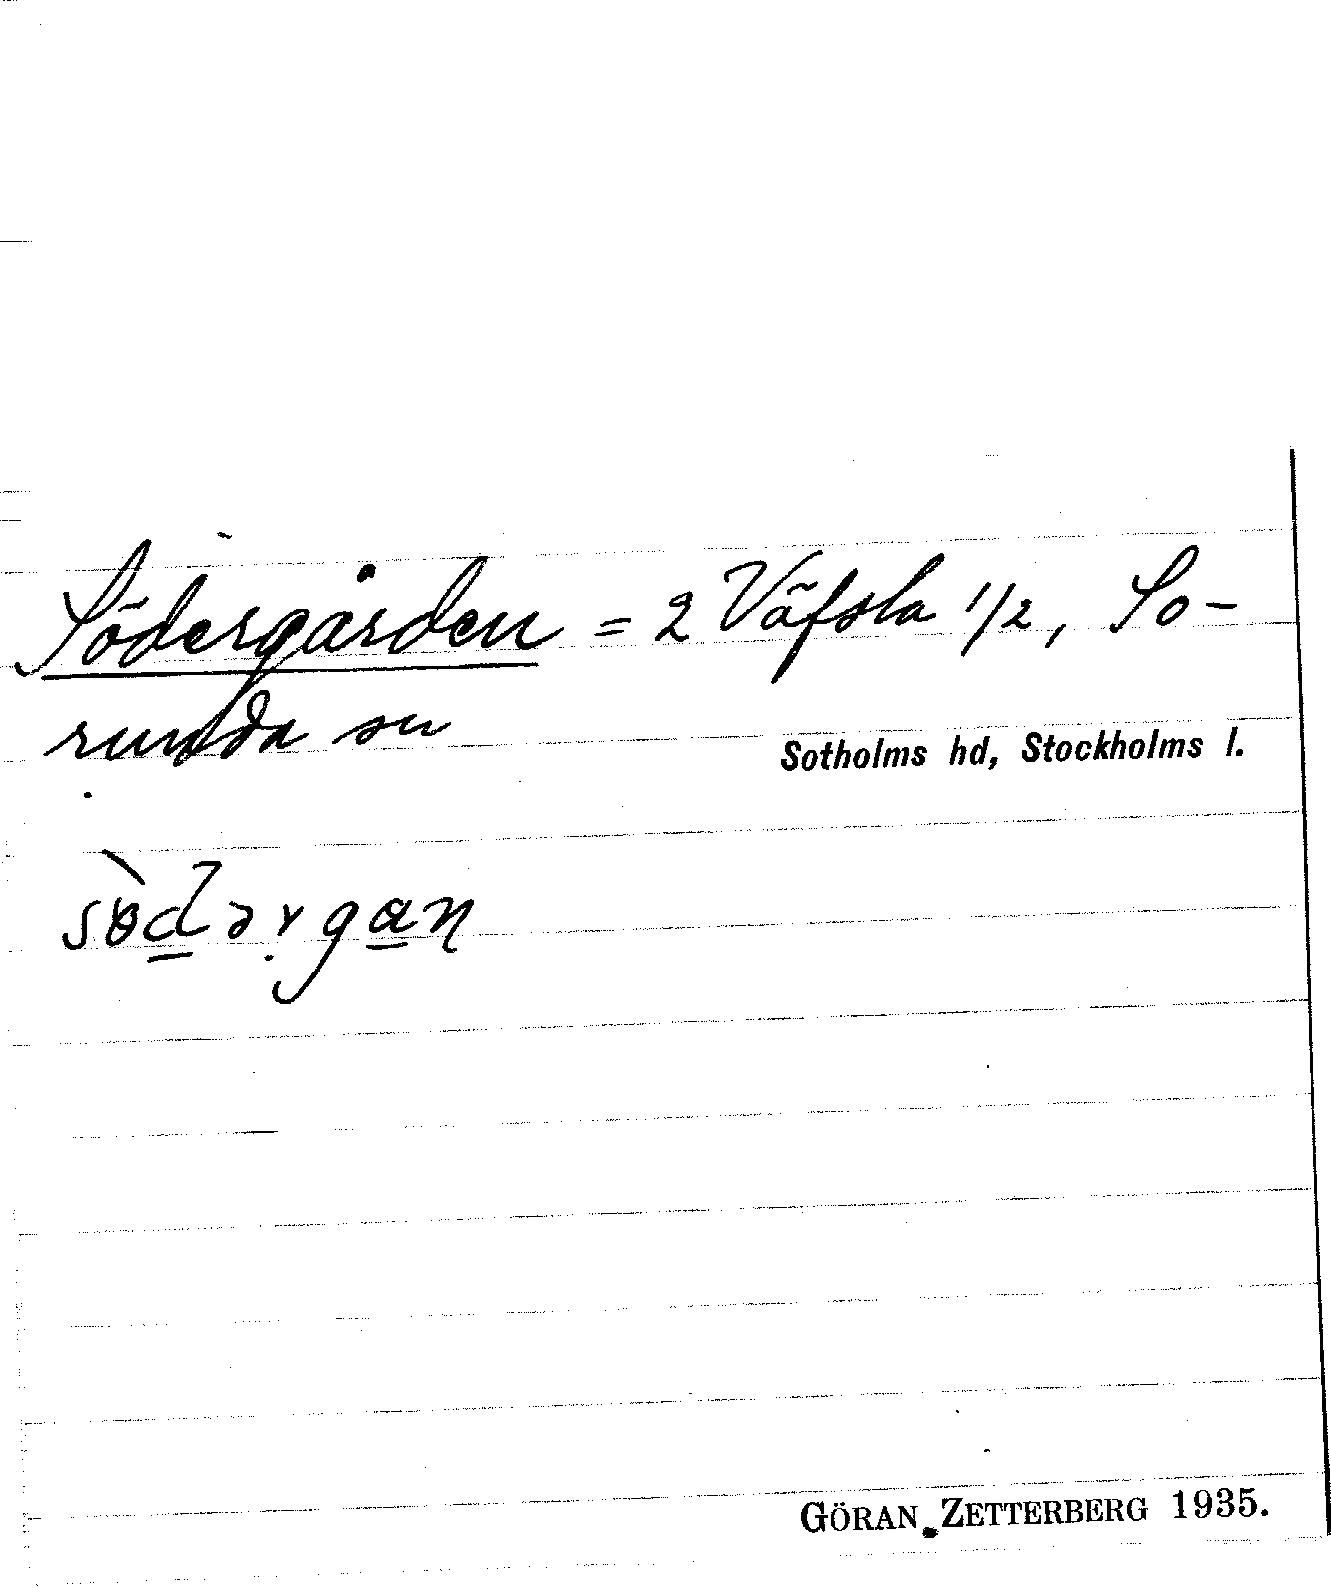 Södergården = 2 Väfsla 1/2, So-
runda sn
Sotholms hd, Stockholms l.
sɵ̀d̲ərga̲n
GÖRAN ZETTERBERG 1935.